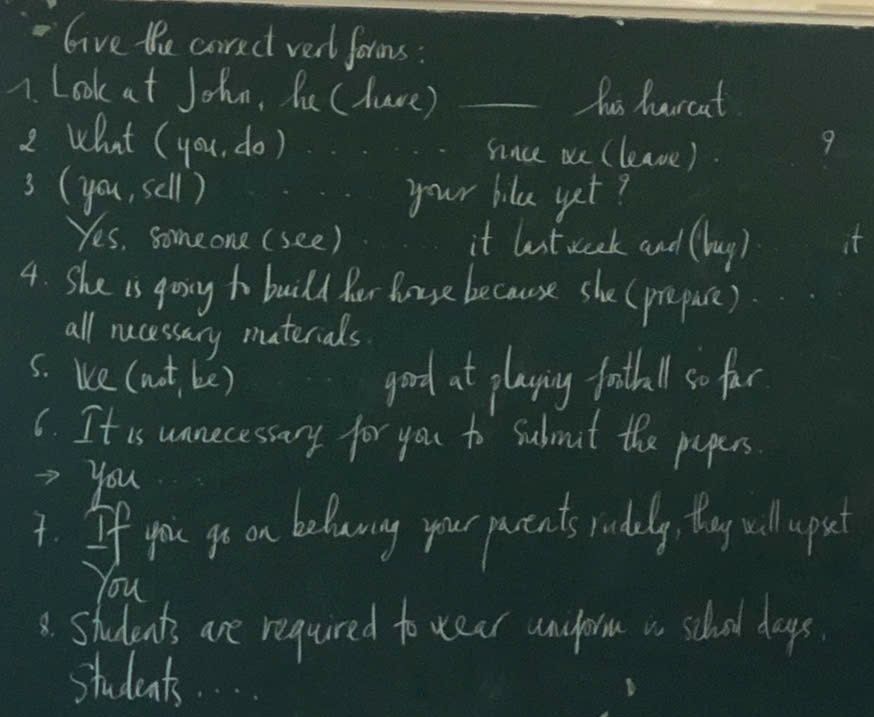 - Give the correct verb forms:
1. Look at John, he (have) ____ his haircut.
2 What (you, do) ........ since we (leave) ..... ?
3 (you, sell) ........ your bike yet?
Yes. someone (see) ....... it last week and (buy) .... it
4. She is going to build her house because she (prepare) .....
all necessary materials.
5. We (not, be) ..... good at playing football so far.
6. It is unnecessary for you to submit the papers.
→ You ....
7. If you go on behaving your parents rudely, they will upset
You
8. Students are required to wear uniform in school days.
Students ....